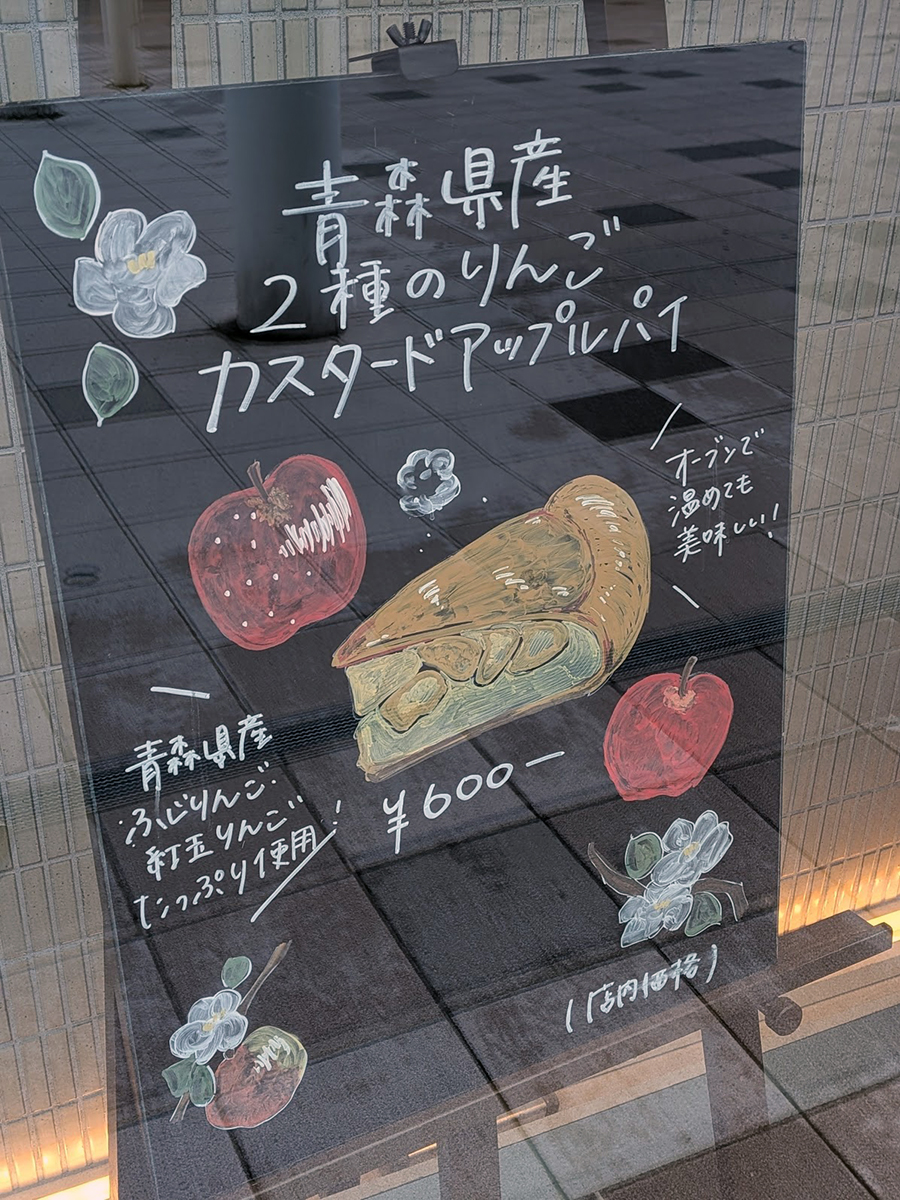 青森県産
2種のりんご
カスタードアップルパイ
オーブンで
温めても
美味しい!
青森県産
ふじりんご
紅玉りんご
たっぷり使用!
¥600ー
(店内価格)